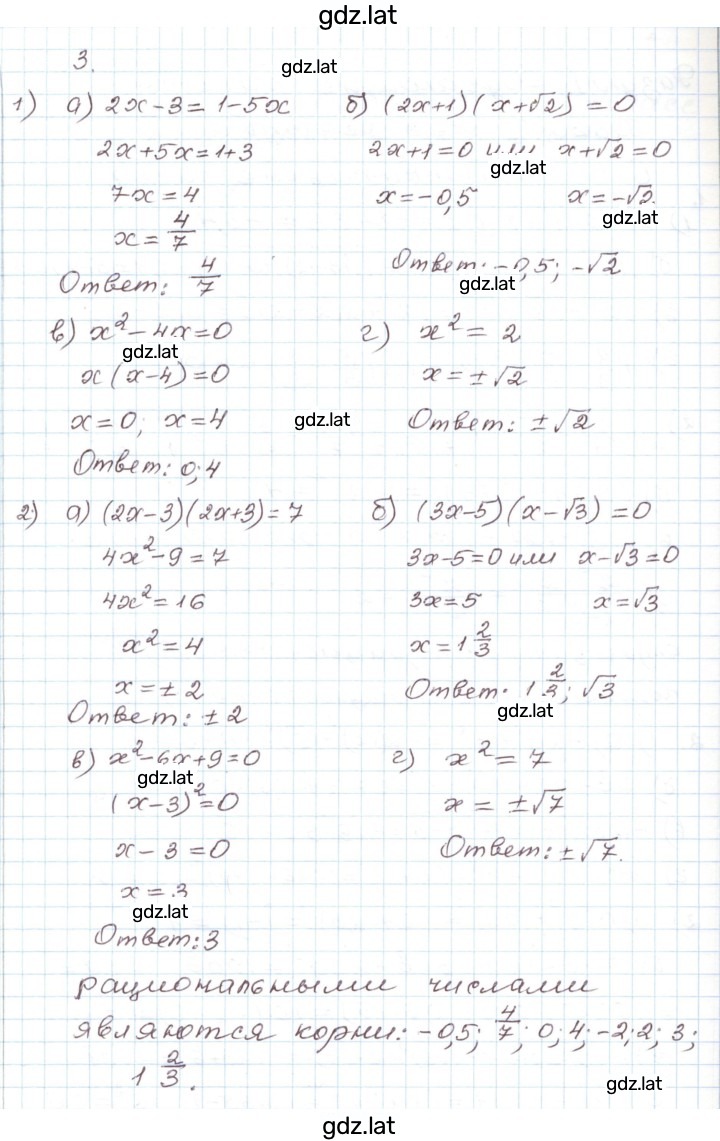 gdz.lat
3.
gdz.lat
1) а) 2x-3=1-5x
2x+5x=1+3
7x=4
x=4/7
Ответ: 4/7
б) (2x+1)(x+√2)=0
2x+1=0 или x+√2=0
gdz.lat
x=-0,5 x=-√2.
gdz.lat
Ответ. -0,5; -√2
gdz.lat
в) x²-4x=0
gdz.lat
x(x-4)=0
x=0; x=4
gdz.lat
Ответ: 0;4
г) x²=2
x=±√2
Ответ: ±√2
2) а) (2x-3)(2x+3)=7
4x²-9=7
4x²=16
x²=4
x=±2
Ответ: ±2
б) (3x-5)(x-√3)=0
3x-5=0 или x-√3=0
3x=5 x=√3
x=1 2/3
Ответ. 1 2/3; √3
gdz.lat
в) x²-6x+9=0
gdz.lat
(x-3)²=0
x-3=0
x=3
gdz.lat
Ответ: 3
г) x²=7
x=±√7
Ответ: ±√7.
рациональными числами
являются корни: -0,5; 4/7; 0; 4; -2; 2; 3;
1 2/3.
gdz.lat
gdz.lat